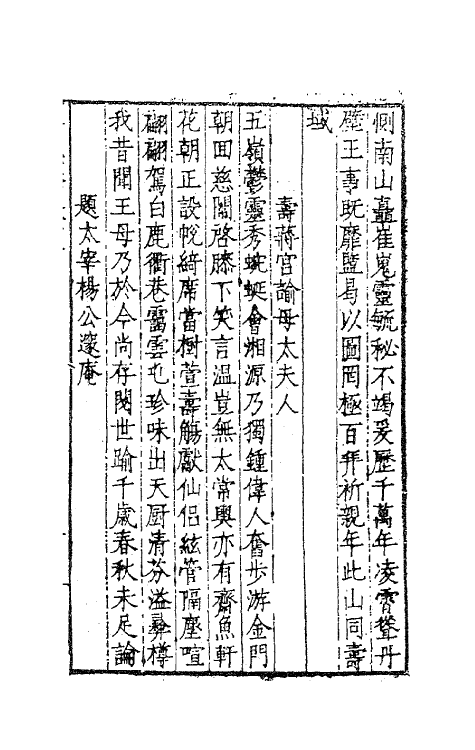 惻南山矗崔嵬靈毓秘不竭爰歷千萬年凌霄聳丹
壁王事既靡盬曷以圖罔極百拜祈親年此山同壽
域
壽蔣宫諭母太夫人
五嶺鬱靈秀蜿蜒會湘源乃獨鍾偉人奮步游金門
朝回慈闈啓膝下笑言温豈無太常輿亦有齋魚軒
花朝正設帨綺席當樹萱壽觴獻仙侣絃管隔塵喧
翩翩駕白鹿衢巷靄雲屯珍味出天厨清芬溢彞樽
我昔聞王母乃於今尚存閲世踰千歲春秋未足論
題太宰楊公邃庵